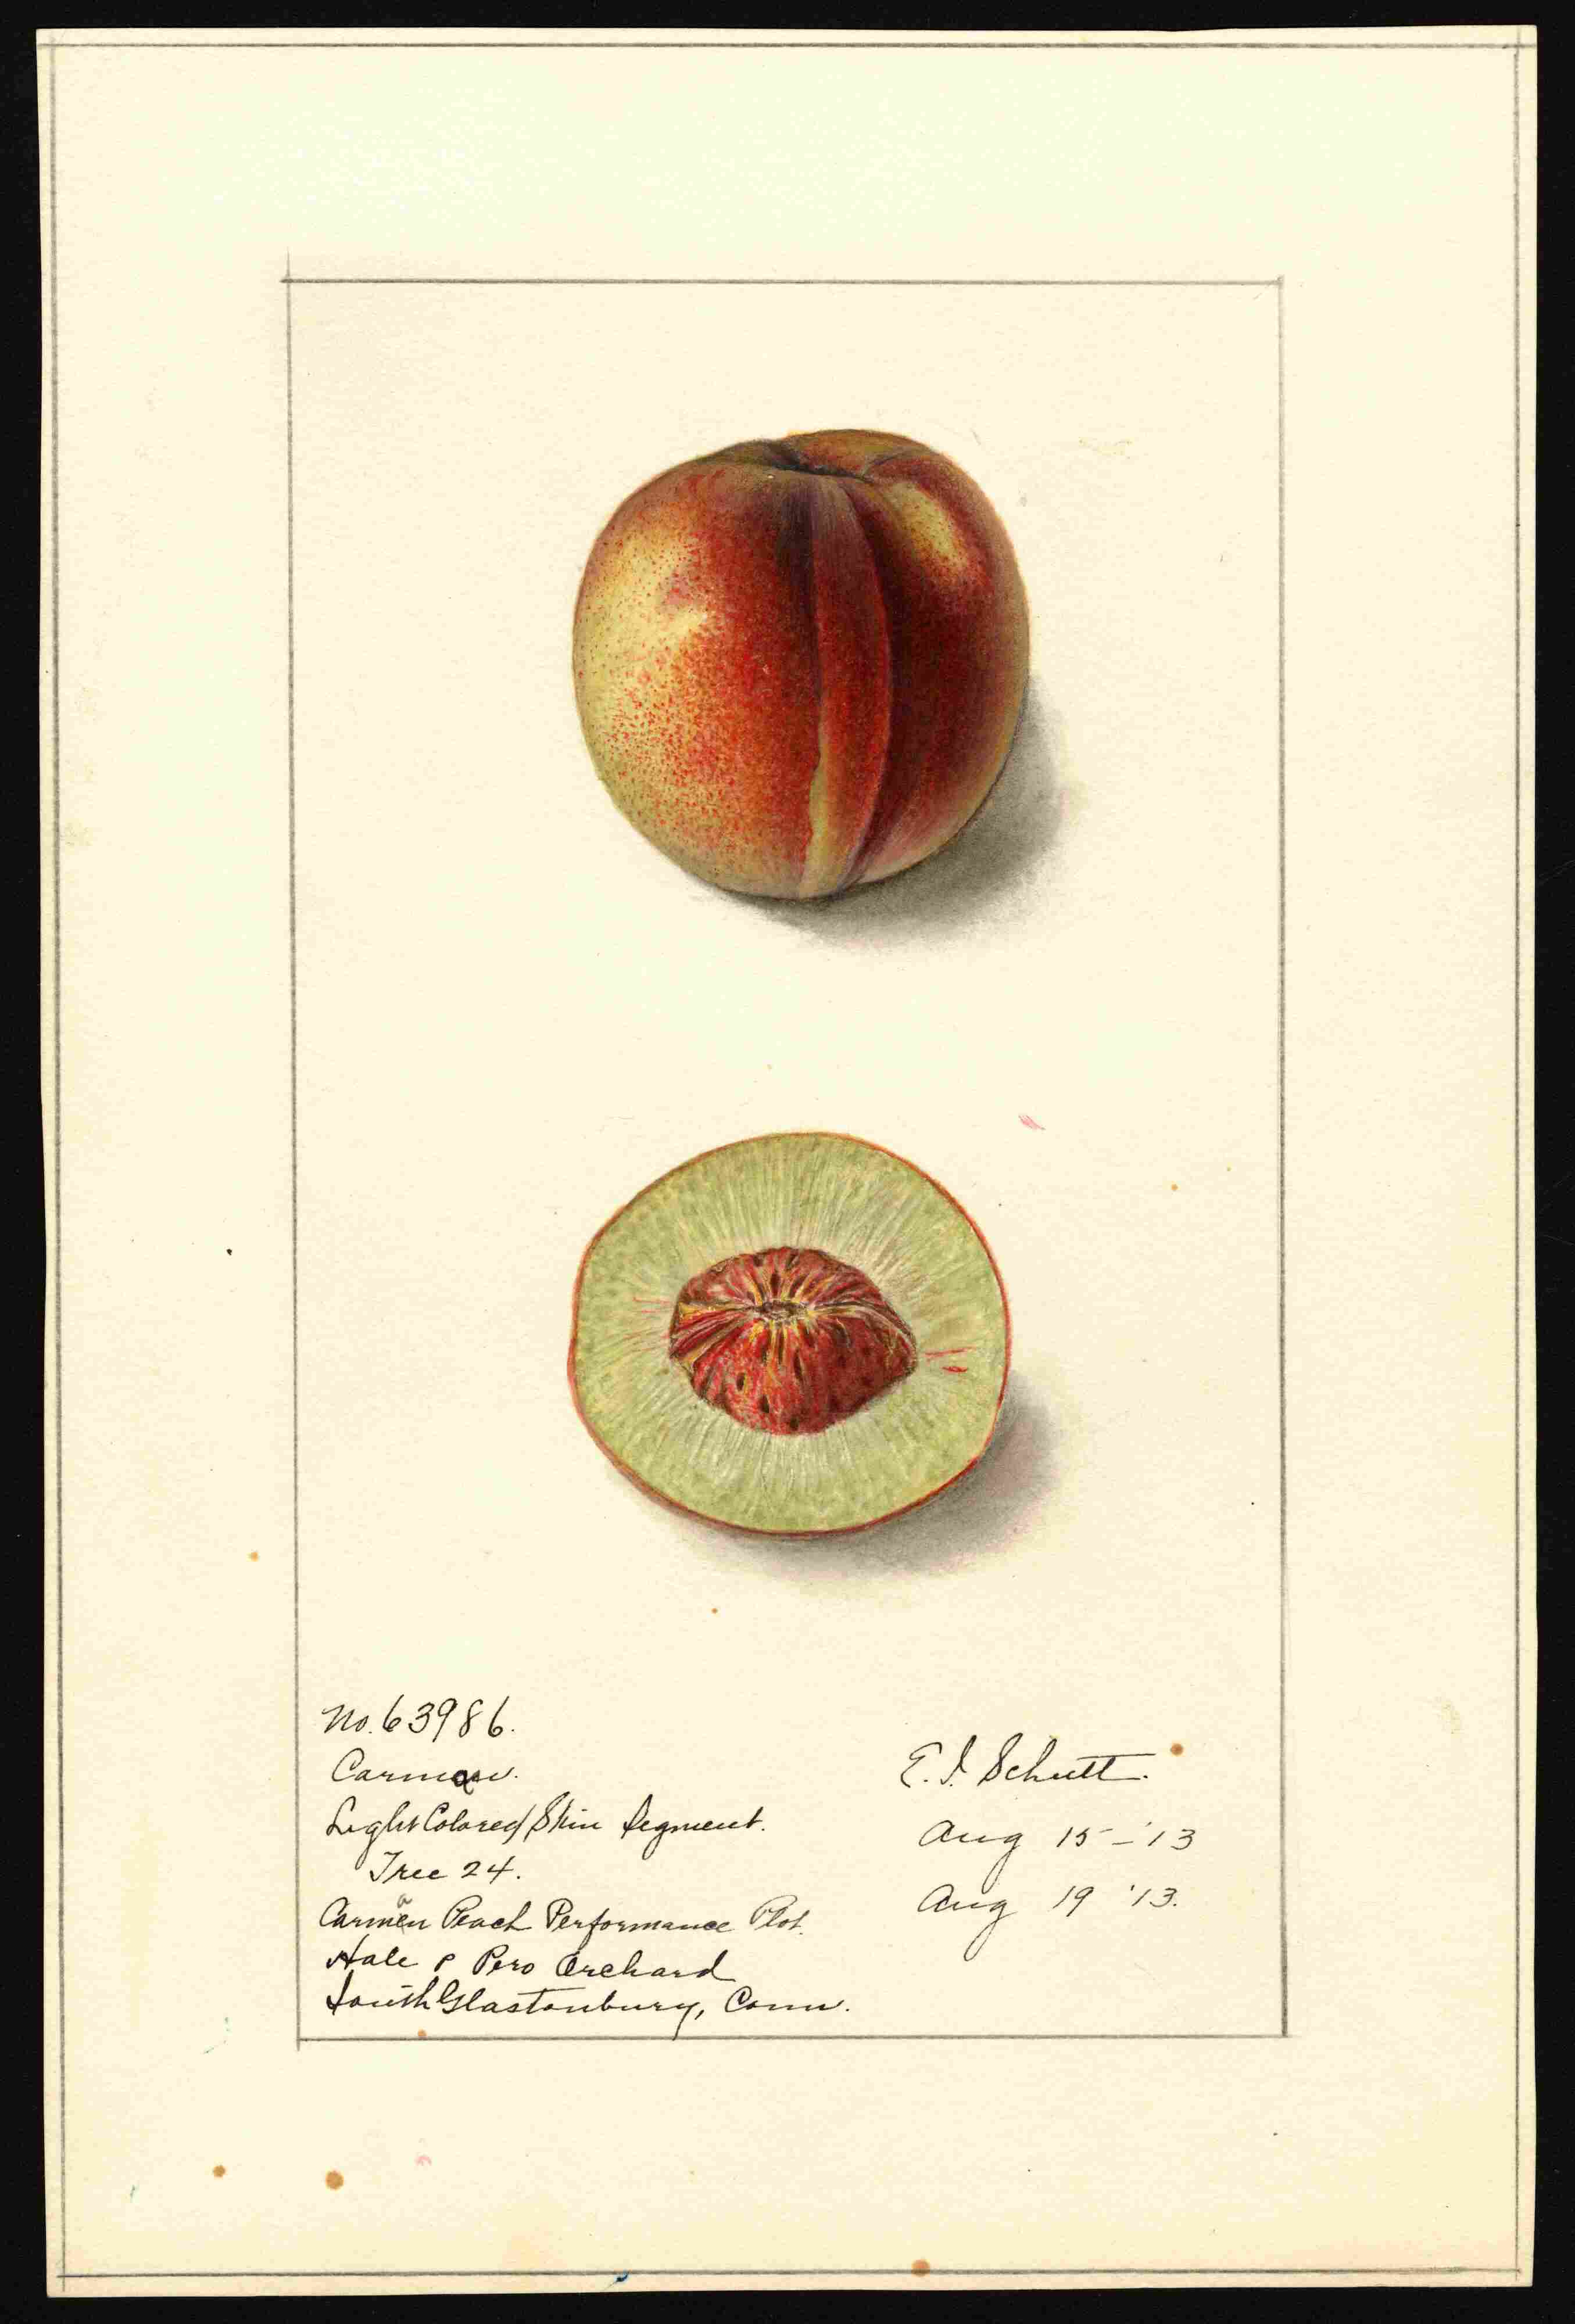 No. 63986.
Carman.
Light Colored Skin Segment.
Tree 24.
Carman Peach Performance Plot.
Hale & Pero Orchard
South Glastonbury, Conn.
E. I. Schutt.
Aug 15-'13
Aug 19 '13.